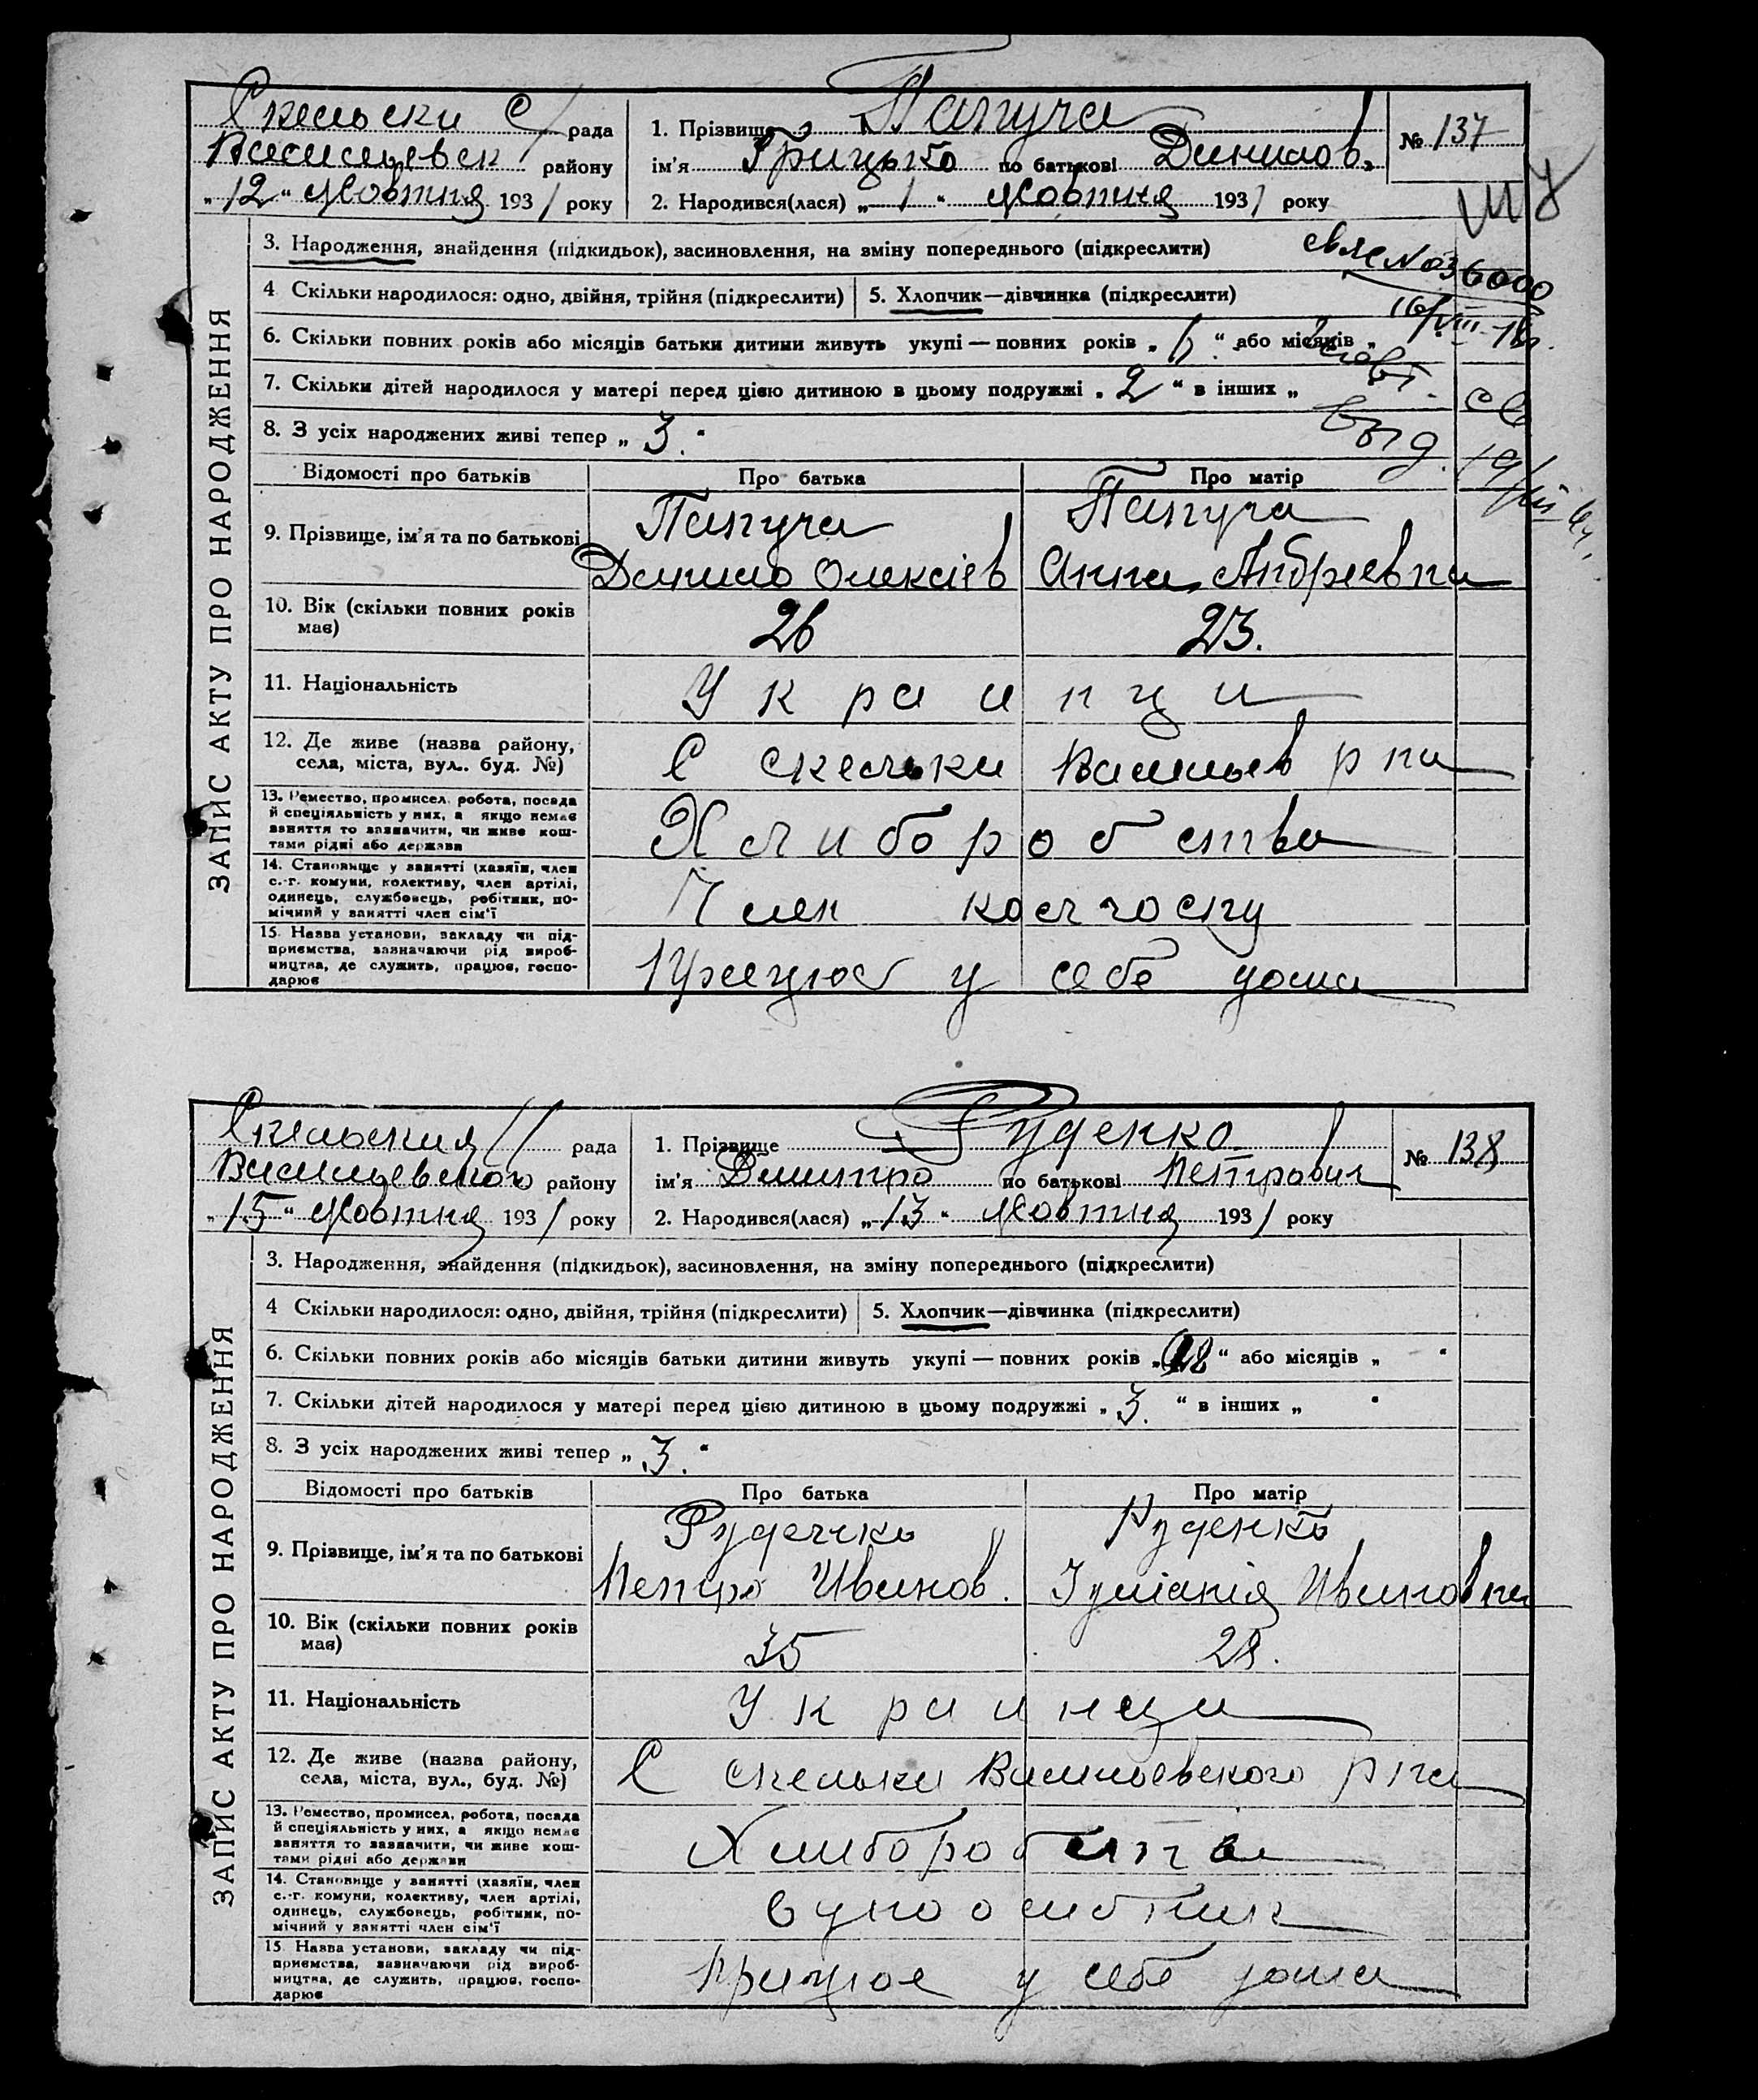 Скельски с/ рада
Васильевск району
„12“ Жовтня 1931 року
1. Прізвище Папуча
ім'я Грицько по батькові Данилов.
2. Народився(лася) „1“ Жовтня 1931 року
№ 137
ЗАПИС АКТУ ПРО НАРОДЖЕННЯ
3. Народження, знайдення (підкидьок), засиновлення, на зміну попереднього (підкреслити)
№ 036000
4 Скільки народилося: одно, двійня, трійня (підкреслити)
5. Хлопчик—дівчинка (підкреслити)
6. Скільки повних років або місяців батьки дитини живуть укупі — повних років „6“ або місяців „
7. Скільки дітей народилося у матері перед цією дитиною в цьому подружжі „2“ в інших „
8. З усіх народжених живі тепер „3.“
Відомості про батьків
Про батька
Про матір
9. Прізвище, ім'я та по батькові
Папуча
Данило Олексіев
Папуча
Анна Андреевна
10. Вік (скільки повних років має)
26
23.
11. Національність
Украинци
12. Де живе (назва району, села, міста, вул.. буд. №)
С Скельки Васильев р на
13. Ремество, промисел, робота, посада
й спеціяльність у них, а якщо немає
заняття то зазначити, чи живе кош-
тами рідні або держава
Хлиборобства
14. Становище у занятті (хазяїн, член
с.-г. комуни, колективу, член артілі,
одинець, службовець, робітник, по-
мічний у занятті член сім'ї
Член колгоспу
15 Назва установи, закладу чи під-
приємства, зазначаючи рід вироб-
ництва, де служить, працює, госпо-
дарює
Працюе у себе дома
Скельския рада
Васильевского району
„15“ Жовтня 1931 року
1. Прізвище Руденко
ім'я Дмитро по батькові Петрович
2. Народився(лася) „13“ Жовтня 1931 року
№ 138
ЗАПИС АКТУ ПРО НАРОДЖЕННЯ
3. Народження, знайдення (підкидьок), засиновлення, на зміну попереднього (підкреслити)
4 Скільки народилося: одно, двійня, трійня (підкреслити)
5. Хлопчик—дівчинка (підкреслити)
6. Скільки повних років або місяців батьки дитини живуть укупі — повних років „ “ або місяців „ “
7. Скільки дітей народилося у матері перед цією дитиною в цьому подружжі „3.“ в інших „ “
8. З усіх народжених живі тепер „3.“
Відомості про батьків
Про батька
Про матір
9. Прізвище, ім'я та по батькові
Руденко
Петро Иванов.
Руденко
ИванОвна
10. Вік (скільки повних років має)
35
28.
11. Національність
Украинци
12. Де живе (назва району, села, міста, вул., буд. №)
С Скельки Васильевского р на
13. Ремество, промисел, робота, посада
й спеціяльність у них, а якщо немає
заняття то зазначити, чи живе кош-
тами рідні або держави
Хлиборобства
14. Становище у занятті (хазяїн, член
с.-г. комуни, колективу, член артілі,
одинець, службовець, робітник, по-
мічний у занятті член сім'ї
15 Назва установи, закладу чи під-
приємства, зазначаючи рід вироб-
ництва, де служить, працює, госпо-
дарює
Працюе у себе дома